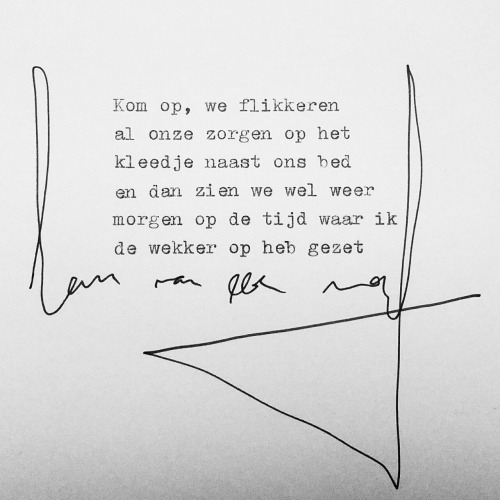 Kom op, we flikkeren
al onze zorgen op het
kleedje naast ons bed
en dan zien we wel weer
morgen op de tijd waar ik
de wekker op heb gezet